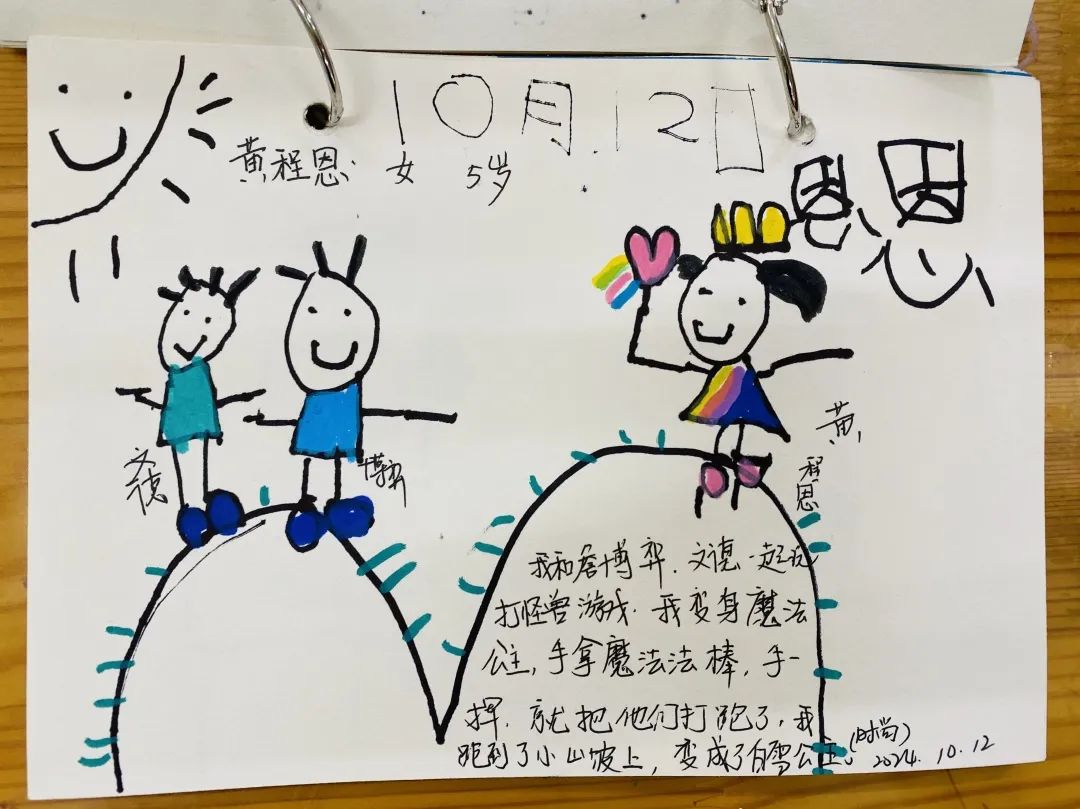 10月.12日
黄程恩: 女 5岁
恩恩
文德
博弈
黄
程恩
我和詹博弈.文德一起玩
打怪兽游戏.我变身魔法
公主,手拿魔法法棒,手一
挥.就把他们打跑了,我
跑到了小山坡上,变成了白雪公主。(时尚)
2024.10.12